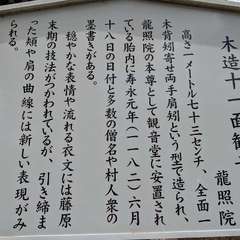 木造十一面観
龍照院
高さ一メートル七十三センチ、全面一
木背矧寄せ両手肩矧という型で造られ、
龍照院の本尊として観音堂に安置され
ている胎内に寿永元年(一一八二)六月
十八日の日付と多数の僧名や村人衆の
墨書きがある。
穏やかな表情や流れる衣文には藤原
末期の技法がつかわれているが、引き締ま
った頬や肩の曲線には新しい表現がみ
られる。